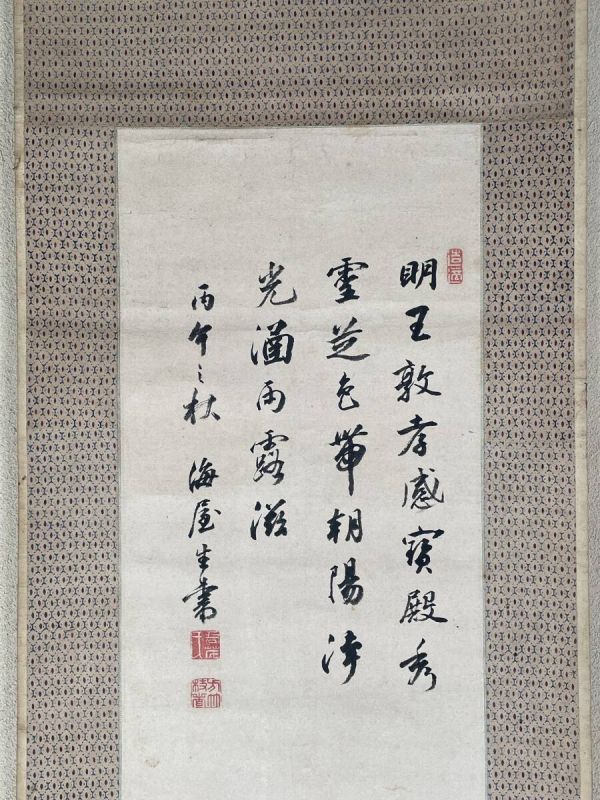 明王敦孝感寶殿秀
靈芝色帶朝陽浄
光涵雨露滋
丙午之秋 海屋生書